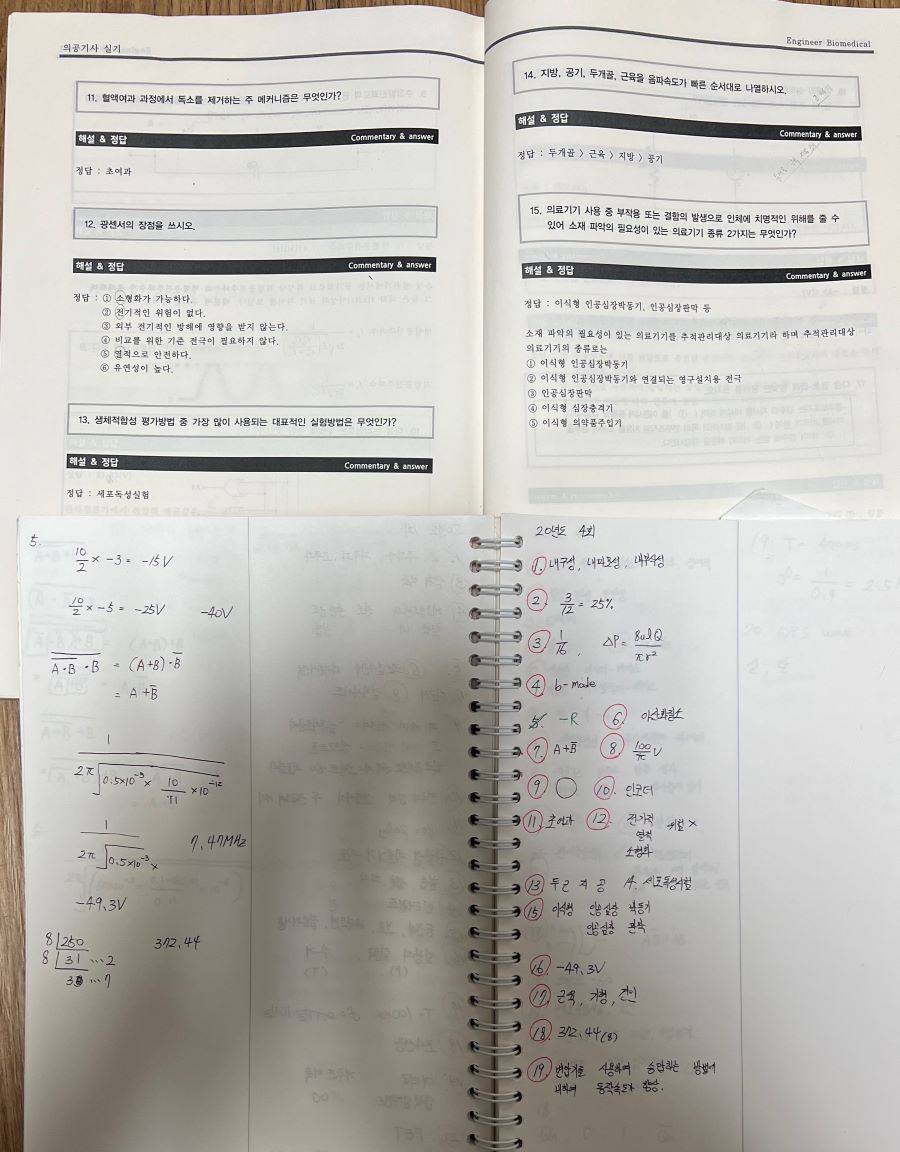 의공기사 실기
11. 혈액여과 과정에서 독소를 제거하는 주 메커니즘은 무엇인가?
해설 & 정답 Commentary & answer
정답 : 초여과
12. 광센서의 장점을 쓰시오.
해설 & 정답 Commentary & answer
정답 : ① 소형화가 가능하다.
② 전기적인 위험이 없다.
③ 외부 전기적인 방해에 영향을 받지 않는다.
④ 비교를 위한 기준 전극이 필요하지 않다.
⑤ 열적으로 안전하다.
⑥ 유연성이 높다.
13. 생체적합성 평가방법 중 가장 많이 사용되는 대표적인 실험방법은 무엇인가?
해설 & 정답 Commentary & answer
정답 : 세포독성실험
Engineer Biomedical
14. 지방, 공기, 두개골, 근육을 음파속도가 빠른 순서대로 나열하시오.
해설 & 정답 Commentary & answer
정답 : 두개골 > 근육 > 지방 > 공기
15. 의료기기 사용 중 부작용 또는 결함의 발생으로 인체에 치명적인 위해를 줄 수
있어 소재 파악의 필요성이 있는 의료기기 종류 2가지는 무엇인가?
해설 & 정답 Commentary & answer
정답 : 이식형 인공심장박동기, 인공심장판막 등
소재 파악의 필요성이 있는 의료기기를 추적관리대상 의료기기라 하며 추적관리대상
의료기기의 종류로는
① 이식형 인공심장박동기
② 이식형 인공심장박동기와 연결되는 영구설치용 전극
③ 인공심장판막
④ 이식형 심장충격기
⑤ 이식형 의약품주입기
5.
10/2 × -3 = -15V
10/2 × -5 = -25V -40V
A·B̅ ·B = (A+B)·B̅
= A+B̅
1
2π √0.5×10⁻³ × 10/π ×10⁻¹²
1
2π √0.5×10⁻³ × 7.47MHz
-49.3V
8 250 372.44
8 31 ...2
3 ...7
20년도 4회
1. 내구성, 내마모성, 내부식성
2. 3/12 = 25%
3. 1/16, ΔP = 8ulQ/πr²
4. b-mode
5. -R 6. 이산화질소
7. A+B̅ 8. 100/π V
9. ○ 10. 인코더
11. 초여과 12. 전기적 위험 ×
열적
소형화
13. 두 근 지 공 A. 세포독성시험
15. 이식형 인공심장 박동기
인공심장 판막
16. -49.3V
17. 근육, 기형, 견인
18. 372.44(8)
19. 변압기를 사용하여 승압하는 방법에